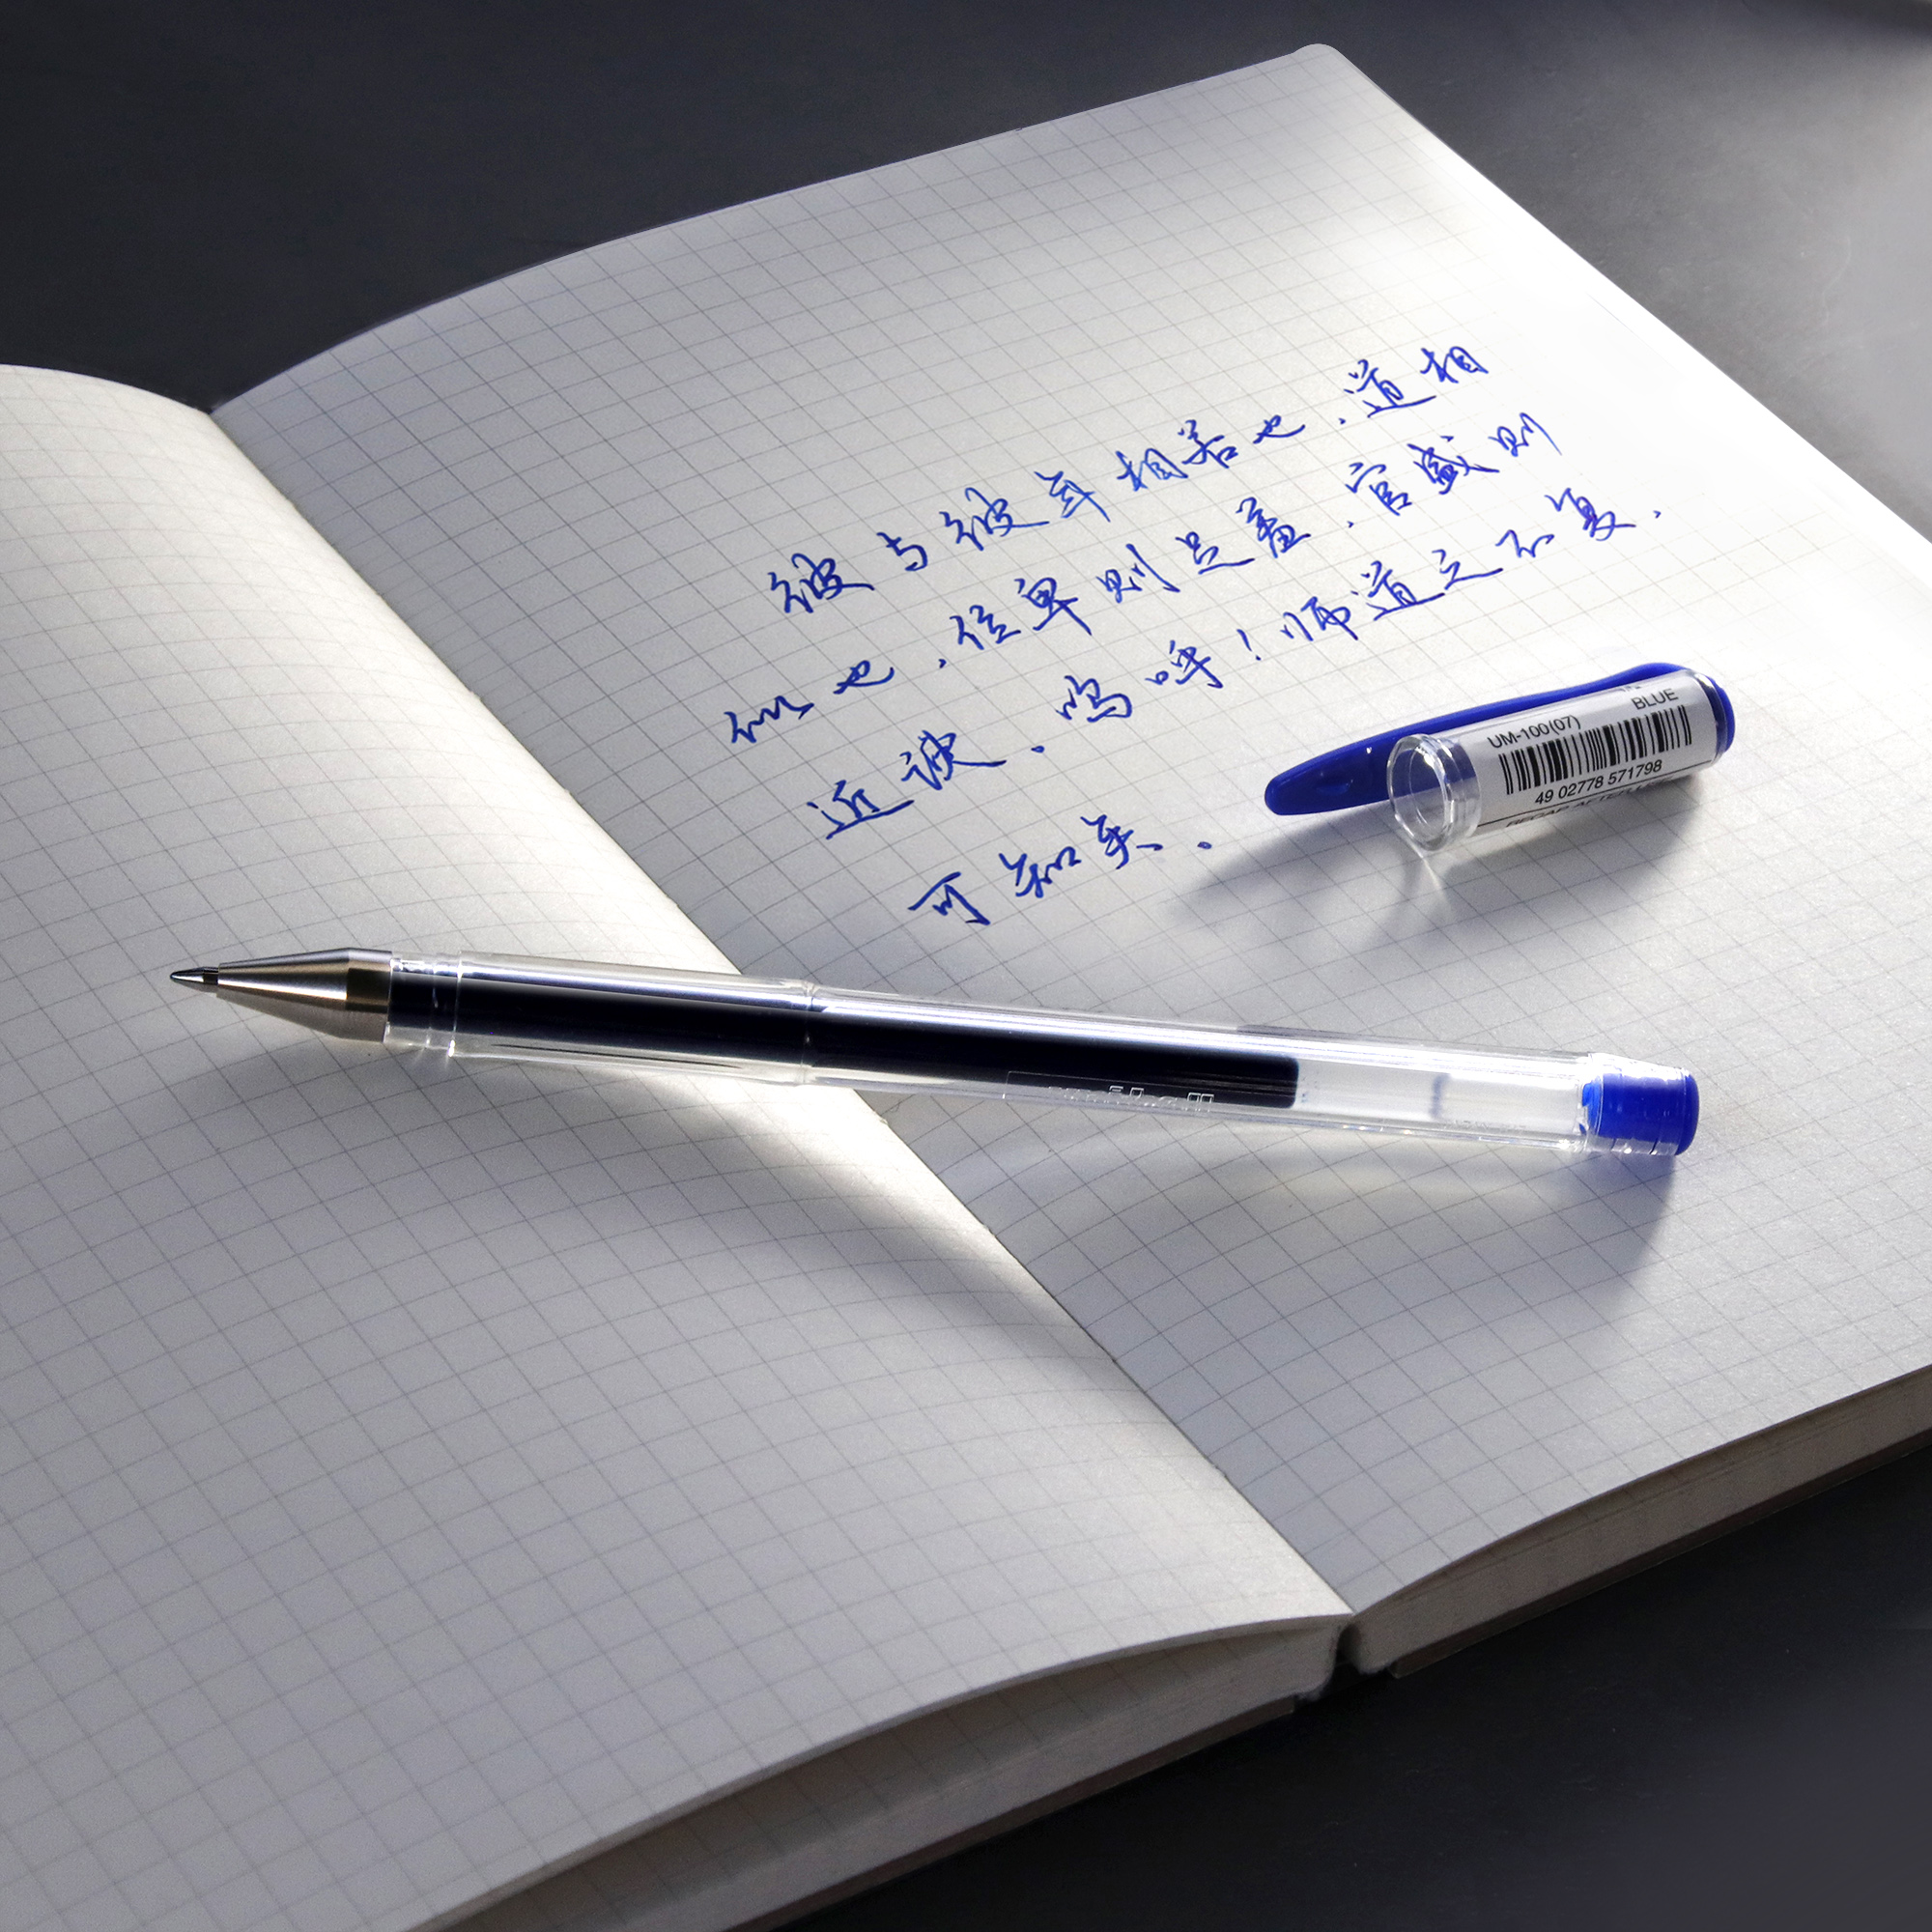 彼与彼年相若也，道相
似也，位卑则足羞，官盛则
近谀，呜呼！师道之不复，
可知矣。
BLUE
UM-100(07)
49 02778 571798
uni-ball